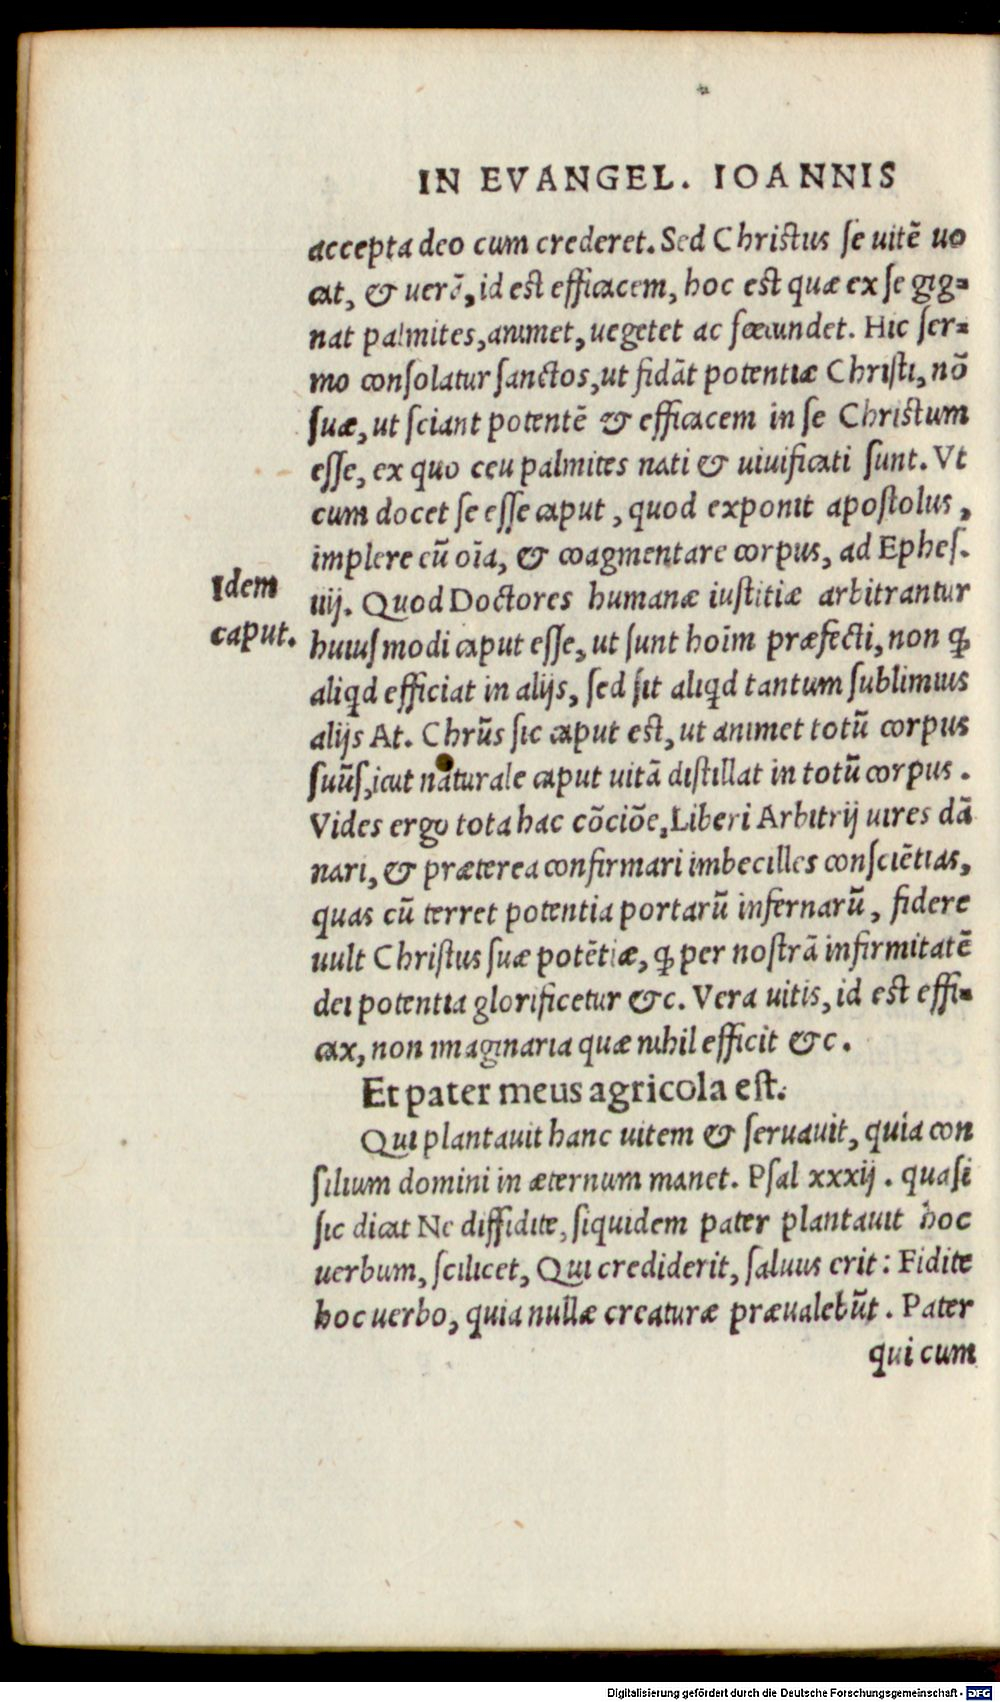 IN EVANGEL. IOANNIS
accepta deo cum crederet. Sed Christus se uitē uo
cat, & uerā, id est efficacem, hoc est quæ ex se gig=
nat palmites, animet, uegetet ac fœcundet. Hic ser=
mo consolatur sanctos, ut fidāt potentiæ Christi, nō
suæ, ut sciant potentē & efficacem in se Christum
esse, ex quo ceu palmites nati & uiuificati sunt. Vt
cum docet se esse caput, quod exponit apostolus,
implere eū oīa, & coagmentare corpus, ad Ephes.
Idem
caput.
iiij. Quod Doctores humanæ iustitiæ arbitrantur
huiusmodi caput esse, ut sunt hoīm præfecti, non ꝙ
aliqd efficiat in alijs, sed sit aliqd tantum sublimius
alijs At. Chrūs sic caput est, ut animet totū corpus
suūs,icut naturale caput uitā distillat in totū corpus.
Vides ergo tota hac cōciōe, Liberi Arbitrij uires dā
nari, & præterea confirmari imbecilles consciētias,
quas cū terret potentia portarū infernarū, fidere
uult Christus suæ potētiæ, ꝙ per nostrā infirmitatē
dei potentia glorificetur &c. Vera uitis, id est effi=
cax, non imaginaria quæ nihil efficit &c.
Et pater meus agricola est.
Qui plantauit hanc uitem & seruauit, quia con
silium domini in æternum manet. Psal xxxij. quasi
sic dicat Ne diffidite, siquidem pater plantauit hoc
uerbum, scilicet, Qui crediderit, saluus erit: Fidite
hoc uerbo, quia nullæ creaturæ præualebūt. Pater
qui cum
Digitalisierung gefördert durch die Deutsche Forschungsgemeinschaft - DFG